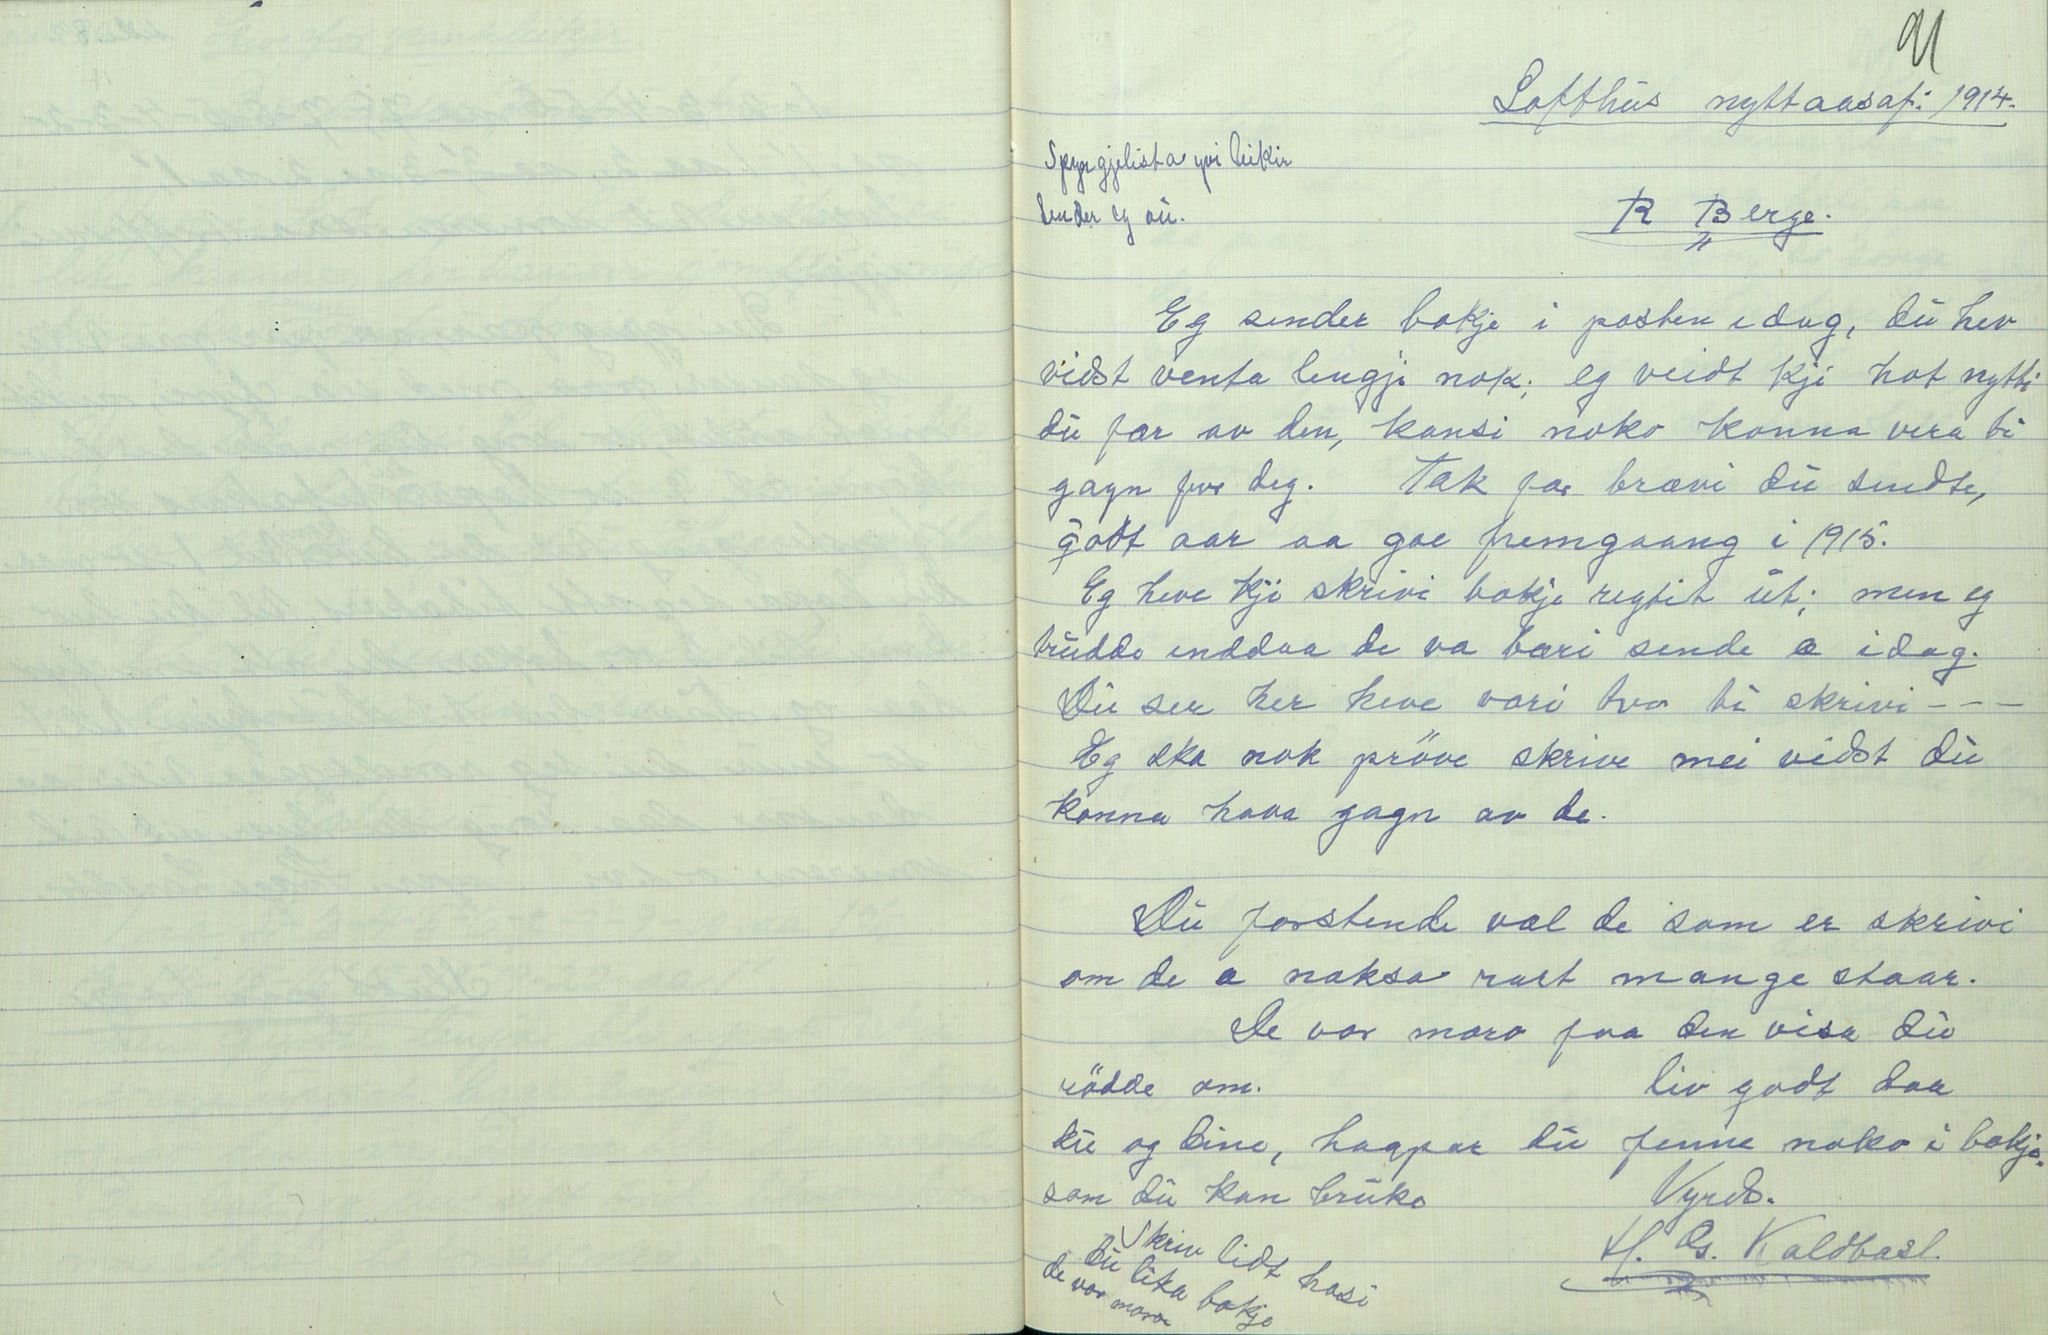 91
Lofthus nyttaarsaft: 1914.
Spyrgjelista yvi leikir
sender eg au.
R Berge.
Eg sender bokje i posten idag, du hev
vidst venta lengji nok; eg veidt kji hot nytti
du fær av den, kansi noko konna vera ti
gagn for deg. Tak for brævi du sendte,
godt aar aa goe fremgaang i 1915.
Eg heve kji skrivi bokje regtit ut; men eg
trudde enddaa de va bæri sende a idag.
Du ser her heve vari tvo ti skrivi - - -
Eg ska nok pröve skrive mei vidst du
konna hava gagn av de.
Du forstende væl de som er skrivi
om de a noksa rart mange staar.
De var moro faa den visa du
rödde om. Liv godt daa
du og dine, haapar du fenne noko i bokje.
som du kan bruke Vyrds.
H. Os. Kaldbasl.
Skriv lidt hosi
du lika bokje
de var moro